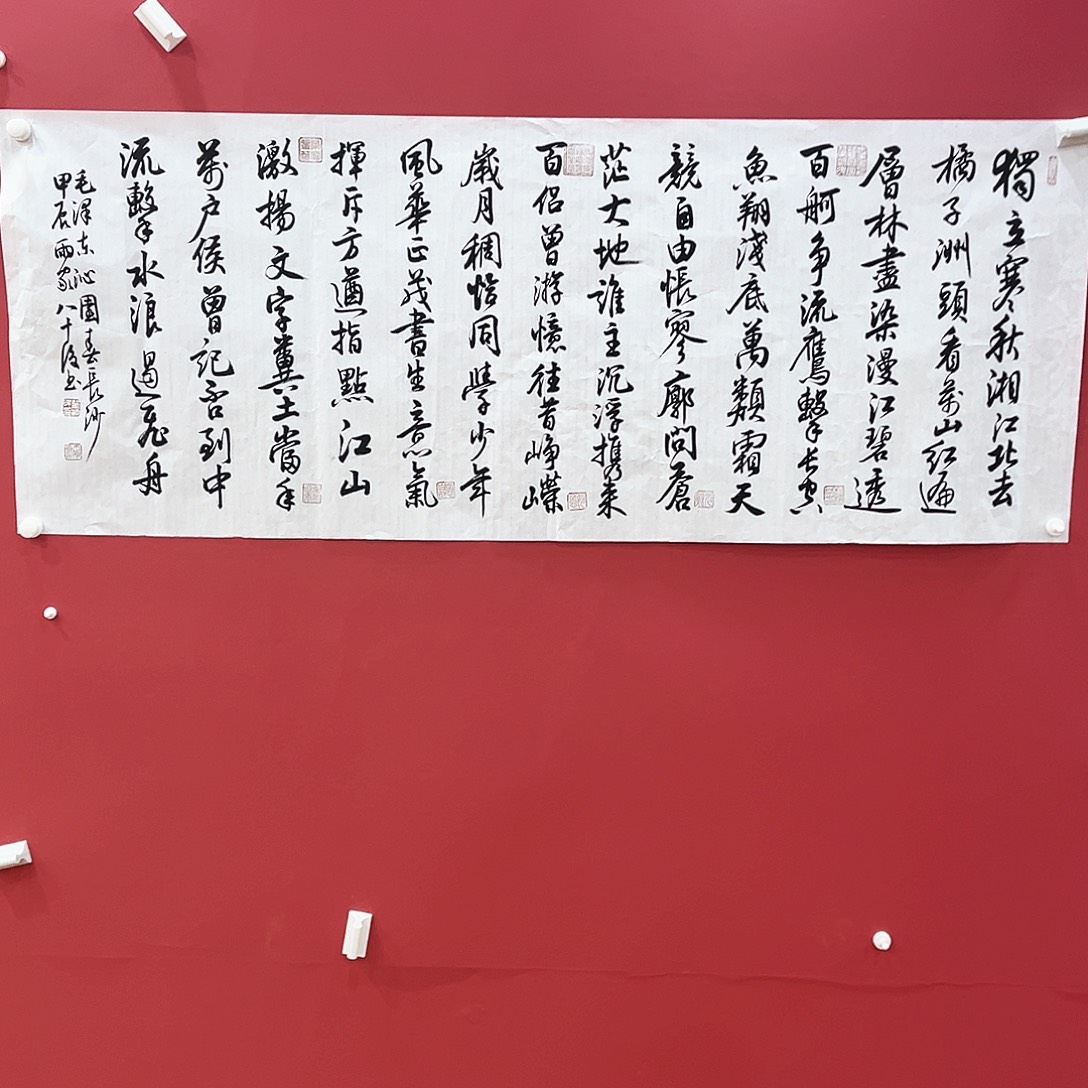 獨立寒秋湘江北去
橘子洲頭看萬山紅遍
層林盡染漫江碧透
百舸争流鷹擊長空
魚翔淺底萬類霜天
競自由悵寥廓問蒼
茫大地誰主沉浮携來
百侣曾游憶往昔崢嶸
歲月稠恰同學少年
風華正茂書生意氣
揮斥方遒指點江山
激揚文字糞土當年
萬户侯曾記否到中
流擊水浪遏飛舟
毛澤东沁園春長沙
甲辰雨家八十後書